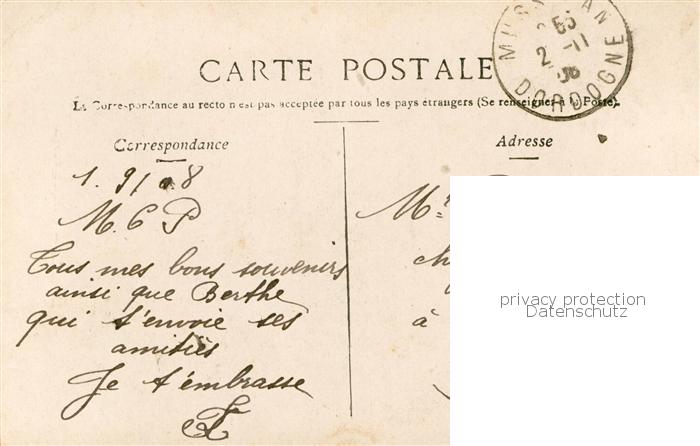 MUSSIDAN
DORDOGNE
CARTE POSTALE
La Correspondance au recto n'est pas acceptée par tous les pays étrangers (Se renseigner à la Poste).
Correspondance
Adresse
M. 6 P
Tous mes bons souvenirs
ainsi que Berthe
qui t'envoie ses
amitiés
Je t'embrasse
à
privacy protection
Datenschutz